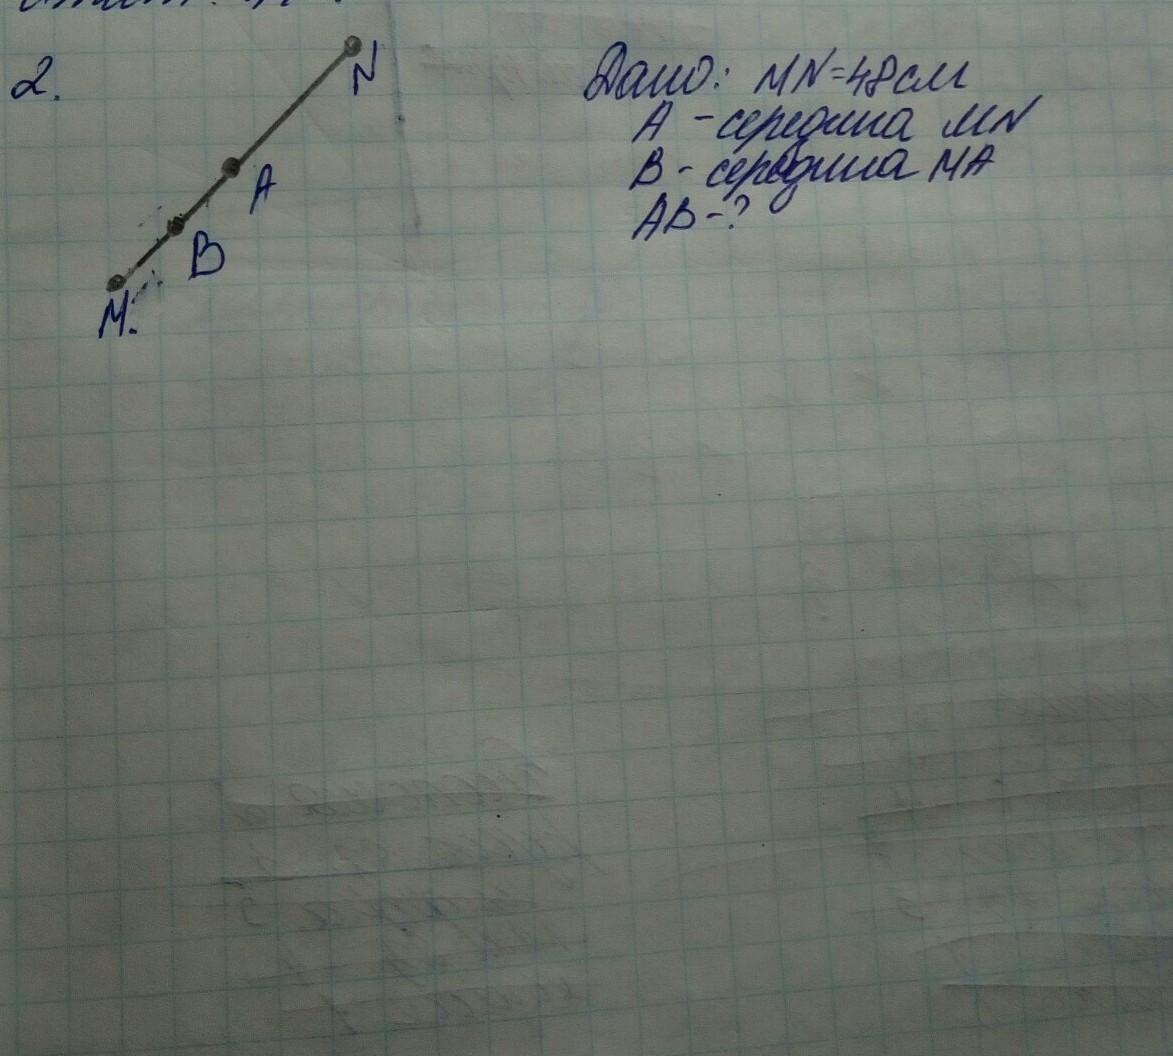 2.
N
A
B
M.
Дано: MN=48см
A - середина MN
B - середина MA
AB-?